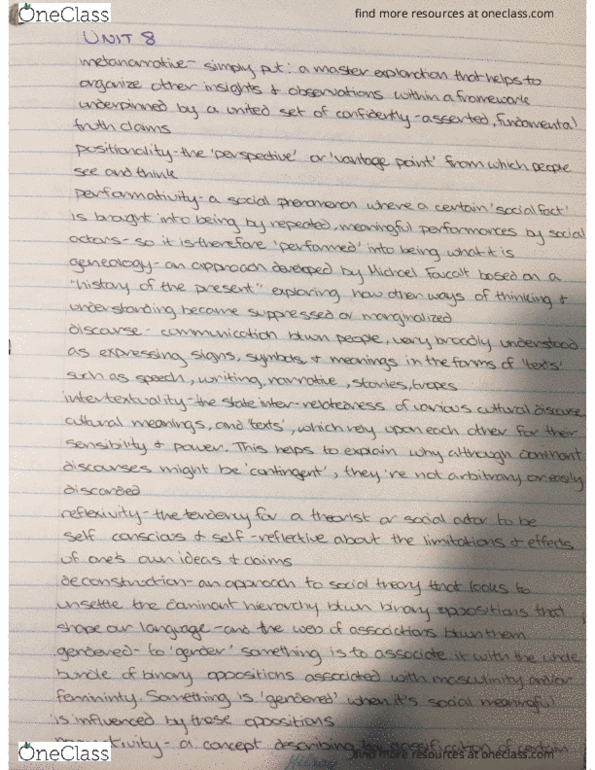 OneClass
find more resources at oneclass.com
UNIT 8
metanarrative- simply put: a master explanation that helps to
organize other insights & observations within a framework
underpinned by a united set of confidently-asserted, fundamental
truth claims
positionality-the 'perspective' or 'vantage point' from which people
see and think
performativity- a social phenomenon where a certain 'social fact'
is brought into being by repeated, meaningful performances by social
actors- so it is therefore 'performed' into being what it is
geneology- an approach developed by Michael Faucalt based on a
"history of the present" exploring how other ways of thinking &
understanding become suppressed or marginalized
discourse - communication btwn people, very broadly understood
as expressing signs, symbols, & meanings in the forms of 'texts'
such as speech, writing, narrative, stories, tropes
intertextuality-the state inter-relatedness of various cultural discourse
cultural meanings, and 'texts', which rely upon each other for their
sensibility & power. This helps to explain why although dominant
discourses might be 'contingent', they're not arbitrary or easily
discarded
reflexivity-the tendency for a theorist or social actor to be
self conscious & self-reflective about the limitations & effects
of one's own ideas & claims
deconstruction-an approach to social theory that looks to
unsettle the dominant hierarchy btwn binary oppositions that
shape our language-and the web of associations btwn them
gendered- to 'gender' something is to associate it with the whole
bundle of binary oppositions associated with masculinity and/or
femininty. Something is 'gendered' when it's social meaningful
is influenced by those oppositions
- a concept describing of certain
OneClass
find more resources at oneclass.com